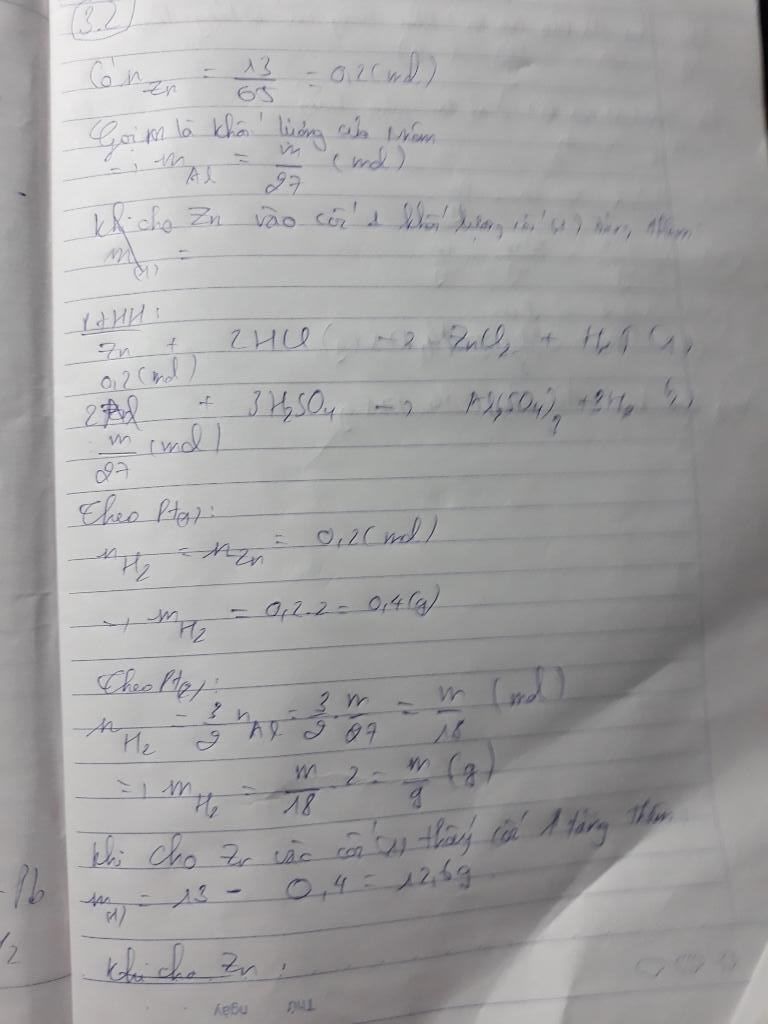 3.2
Có n Zn = 13/65 = 0,2 (mol)
Gọi m là khối lượng của nhôm
=> m Al = m/27 (mol)
Khi cho Zn vào cốc 1 khối lượng cốc (1) tăng thêm
m(1) =
PTHH:
Zn + 2HCl -> ZnCl2 + H2↑ (1)
0,2 (mol)
2Al + 3H2SO4 -> Al2(SO4)3 + 3H2
m/27 (mol)
Theo Pt(1):
n H2 = n Zn = 0,2 (mol)
-> m H2 = 0,2.2 = 0,4 (g)
Theo Pt(2):
n H2 = 3/2 n Al = 3/2 . m/27 = m/18 (mol)
=> m H2 = m/18 . 2 = m/9 (g)
Khi cho Zn vào cốc (1) thấy cốc 1 tăng thêm
m(1) = 13 - 0,4 = 12,6g
Khi cho Zn
Pb
Thứ ngày